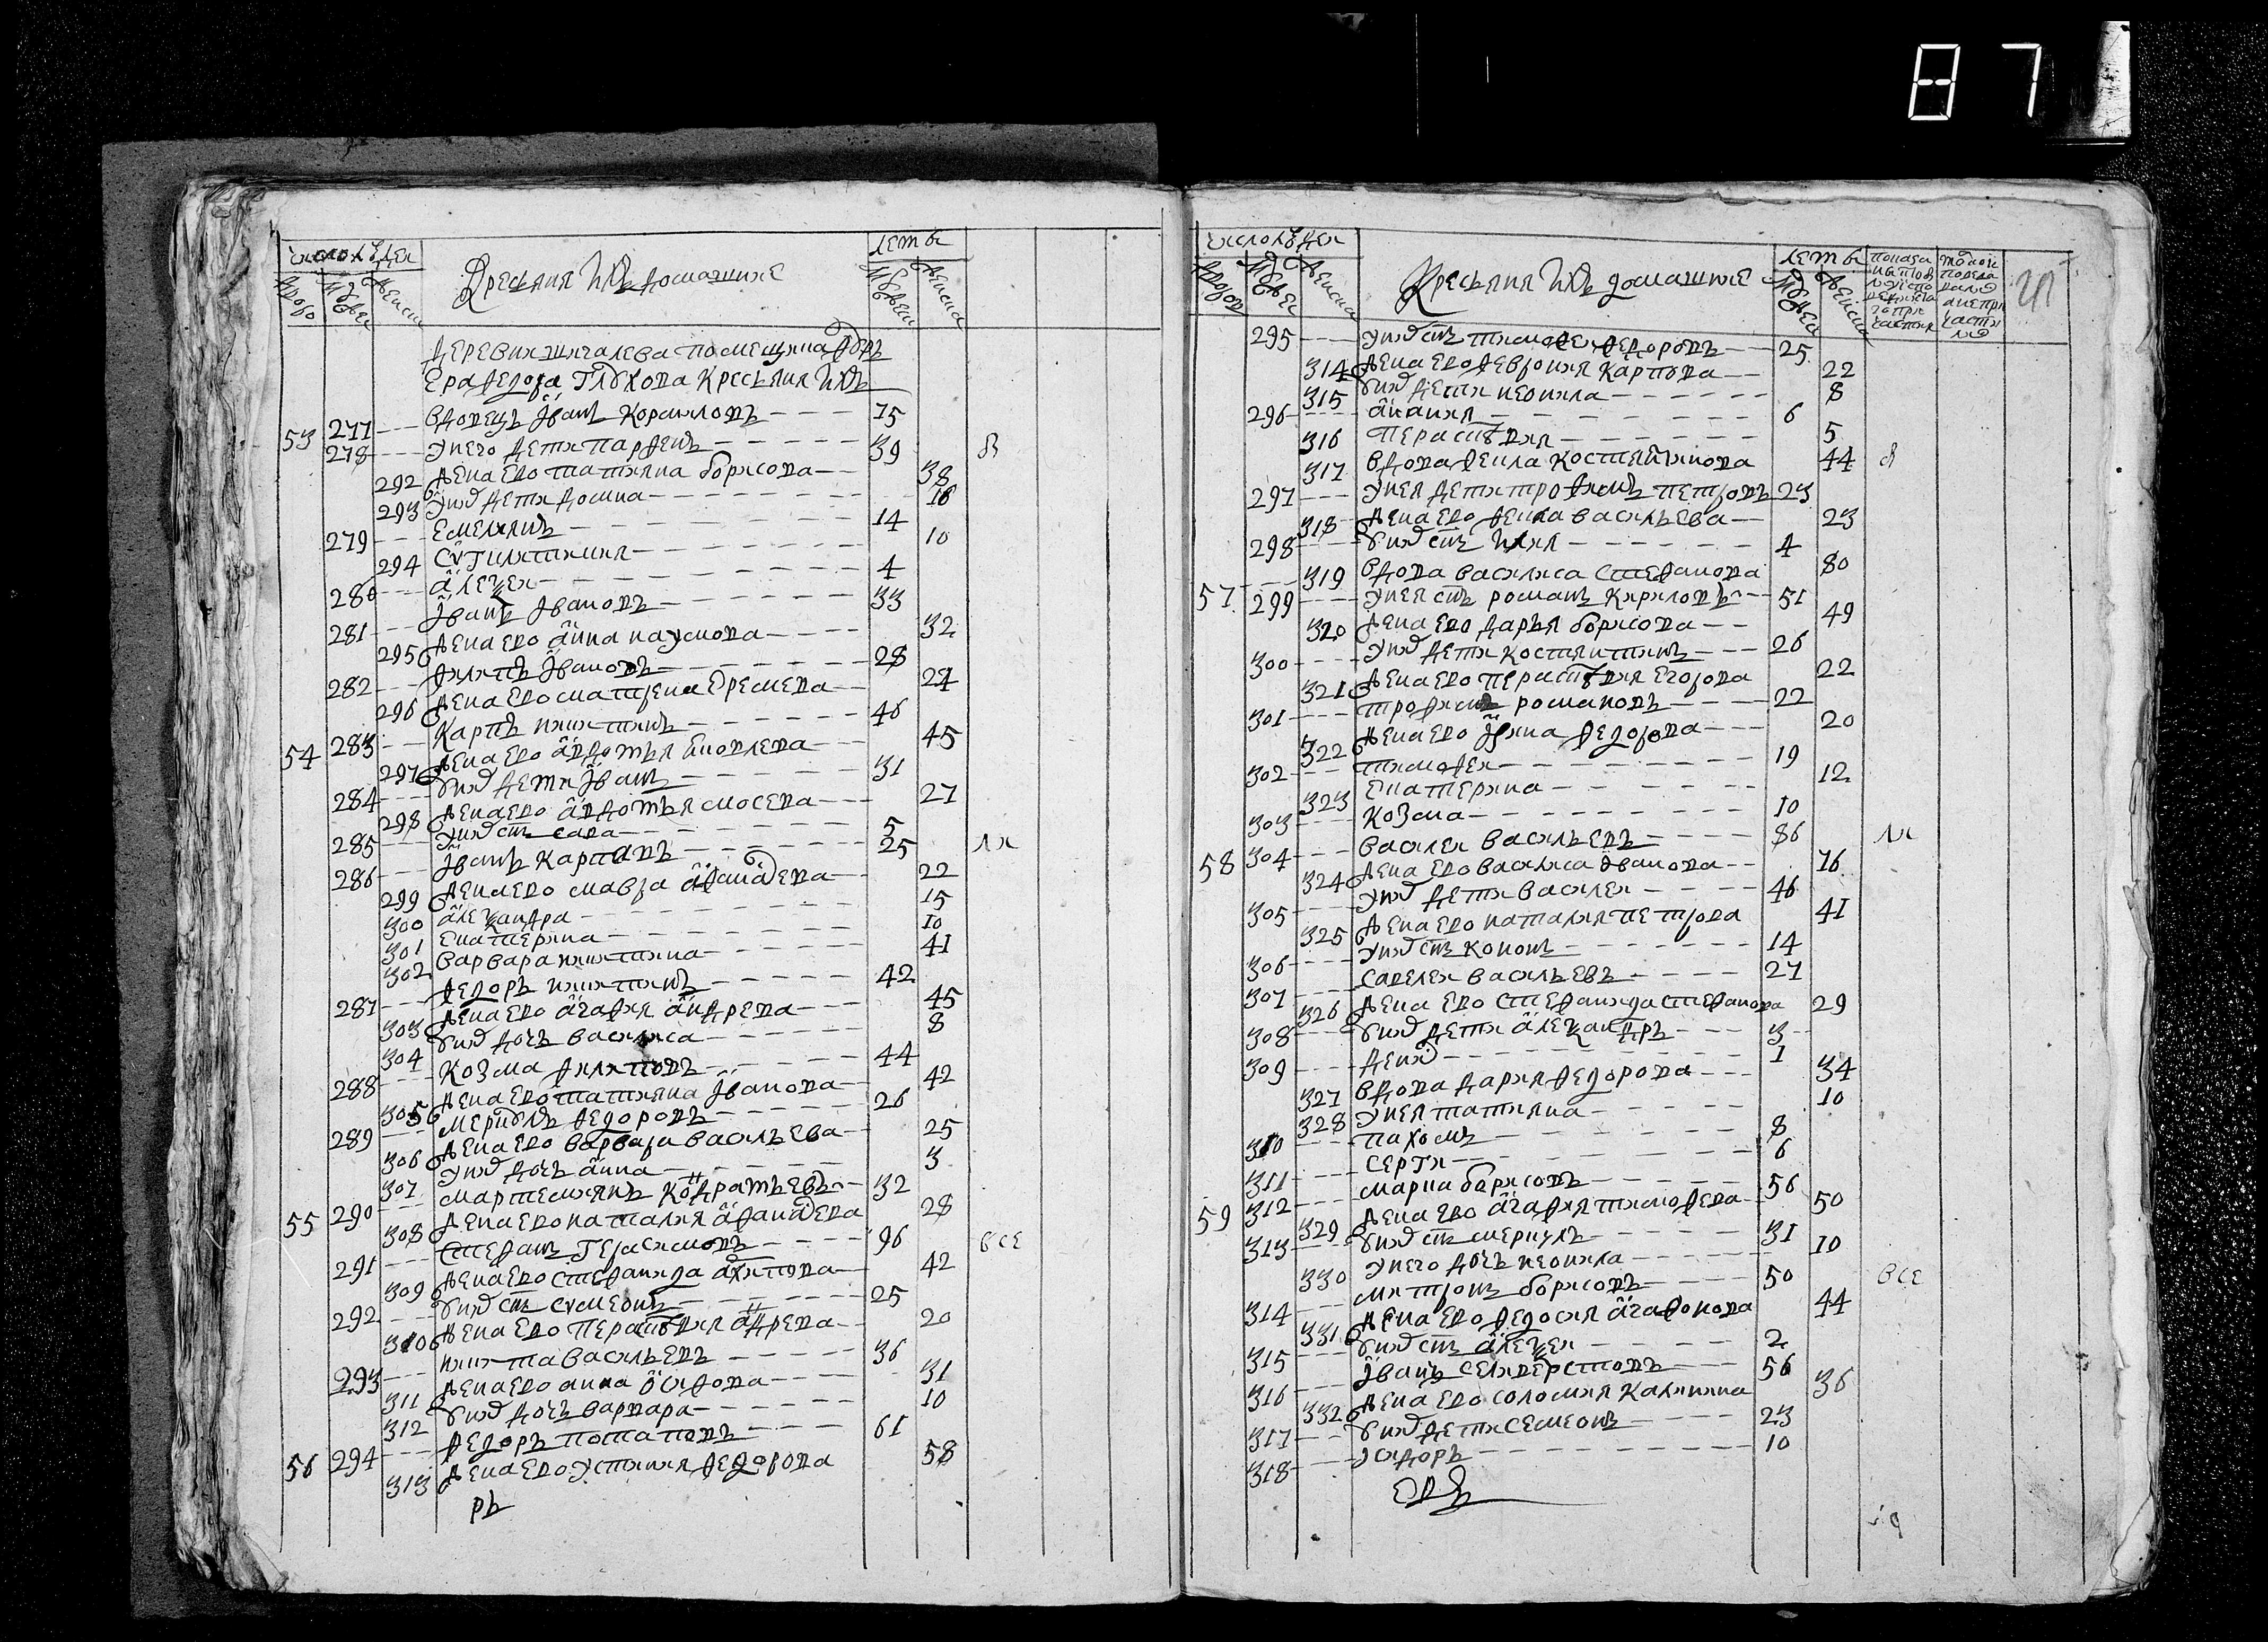 87
число людей
дворо
мужес
женска
Крестьяня ихъ домашние
лета
мужеск
женска
деревни шигалева помещика Федора
Ера Федора Глухова крестьяня ихъ
53 277 вдовецъ Иванъ Корниловъ 75
278 у него дети Парфенъ 39
292 жена ево Татияна Борисова 38
293 у нихъ дети Домна 16
279 Емелиянъ 14
294 Сунгилитикия 10
280 Алексеи 4
281 Иванъ Ивановъ 33
295 жена ево Анна Наумова 32
282 Филипъ Ивановъ 28
296 жена ево Матрена Еремева 24
54 283 Карпъ Никитинъ 46
297 жена ево Авдотья Яковлева 45
284 у нихъ дети Иванъ 31
298 жена ево Авдотья Мосева 27
285 у нихъ сынъ Сава 5
286 Иванъ Карповъ 25
299 жена ево Мавра Афанасева 22
300 Александра 15
301 Екатерина 10
302 Варвара Никитина 41
287 Федоръ Никитинъ 42
303 жена ево Агафия Андрева 45
304 у нихъ дочь Василиса 8
288 Козма Филиповъ 44
305 жена ево Татияна Иванова 42
289 Меркулъ Федоровъ 26
306 жена ево Варвара Васильева 25
307 у нихъ дочь Анна 3
55 290 Мартемиянъ Кондратьевъ 32
308 жена ево Наталия Афанасева 28
291 Стефанъ Герасимовъ 96
309 жена ево Стефанида Архипова 42
292 у нихъ сынъ Сумеонъ 25
310 жена ево Перасковия Андрева 20
293 Никита Васильевъ 36
311 жена ево Анна Осипова 31
312 у нихъ дочь Варвара 10
56 294 Федоръ Потаповъ 61
313 жена ево Устиния Федорова 58
ръ
все
число людей
двороў
мужес
женска
Крестьяня ихъ домашние
лета
мужес
женска
295 у нихъ сынъ Тимофеи Федоровъ 25
314 жена ево Февро­ния Карпова 22
315 у нихъ дети Неонила 8
296 Анания 6
316 Перасковия 5
317 вдова Фекла Костянтинова 44
297 у нея дети Трофимъ Петровъ 23
318 жена ево Фекла Васильева 23
298 у нихъ сынъ Илия 4
57 319 вдова Василиса Стефанова 80
299 у нея сынъ Романъ Кириловъ 51
320 жена ево Дарья Борисова 49
300 у нихъ дети Костянтинъ 26
321 жена ево Перасковия Егорова 22
301 Трофимъ Романовъ 22
322 жена ево Ирина Федорова 20
302 Тимофеи 19
323 Екатерина 12
303 Козма 10
58 304 Василеи Васильевъ 86
324 жена ево Василиса Иванова 76
305 у нихъ дети Василеи 46
325 жена ево Наталия Петрова 41
306 у нихъ сынъ Кононъ 14
307 Савелеи Васильевъ 27
326 жена ево Стефанида Стефанова 29
308 у нихъ дети Александръ 3
309 1
327 вдова Дария Федорова 34
328 у нея Татияна 10
310 Пахомъ 8
311 Серги 6
59 312 Марка Борисовъ 56
329 жена ево Агафия Тимофева 50
313 у нихъ сынъ Меркулъ 31
330 у него дочь Неонила 10
314 Митронъ Борисовъ 50
331 жена ево Федосия Агафонова 44
315 у нихъ сынъ Алексеи 2
316 Иванъ Селиверстовъ 56
332 жена ево Соломия Калинина 36
317 у нихъ дети Семеонъ 23
318 Сидоръ 10
все